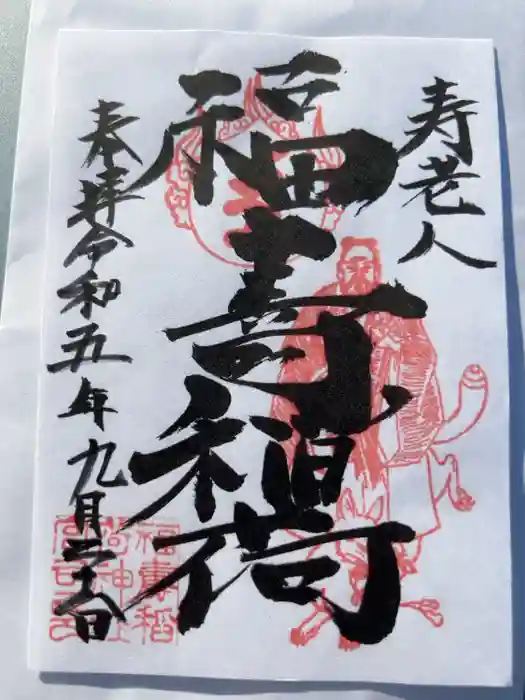 寿老人
福寿稲荷
奉拝令和五年九月二十八日
福壽稲
荷神社